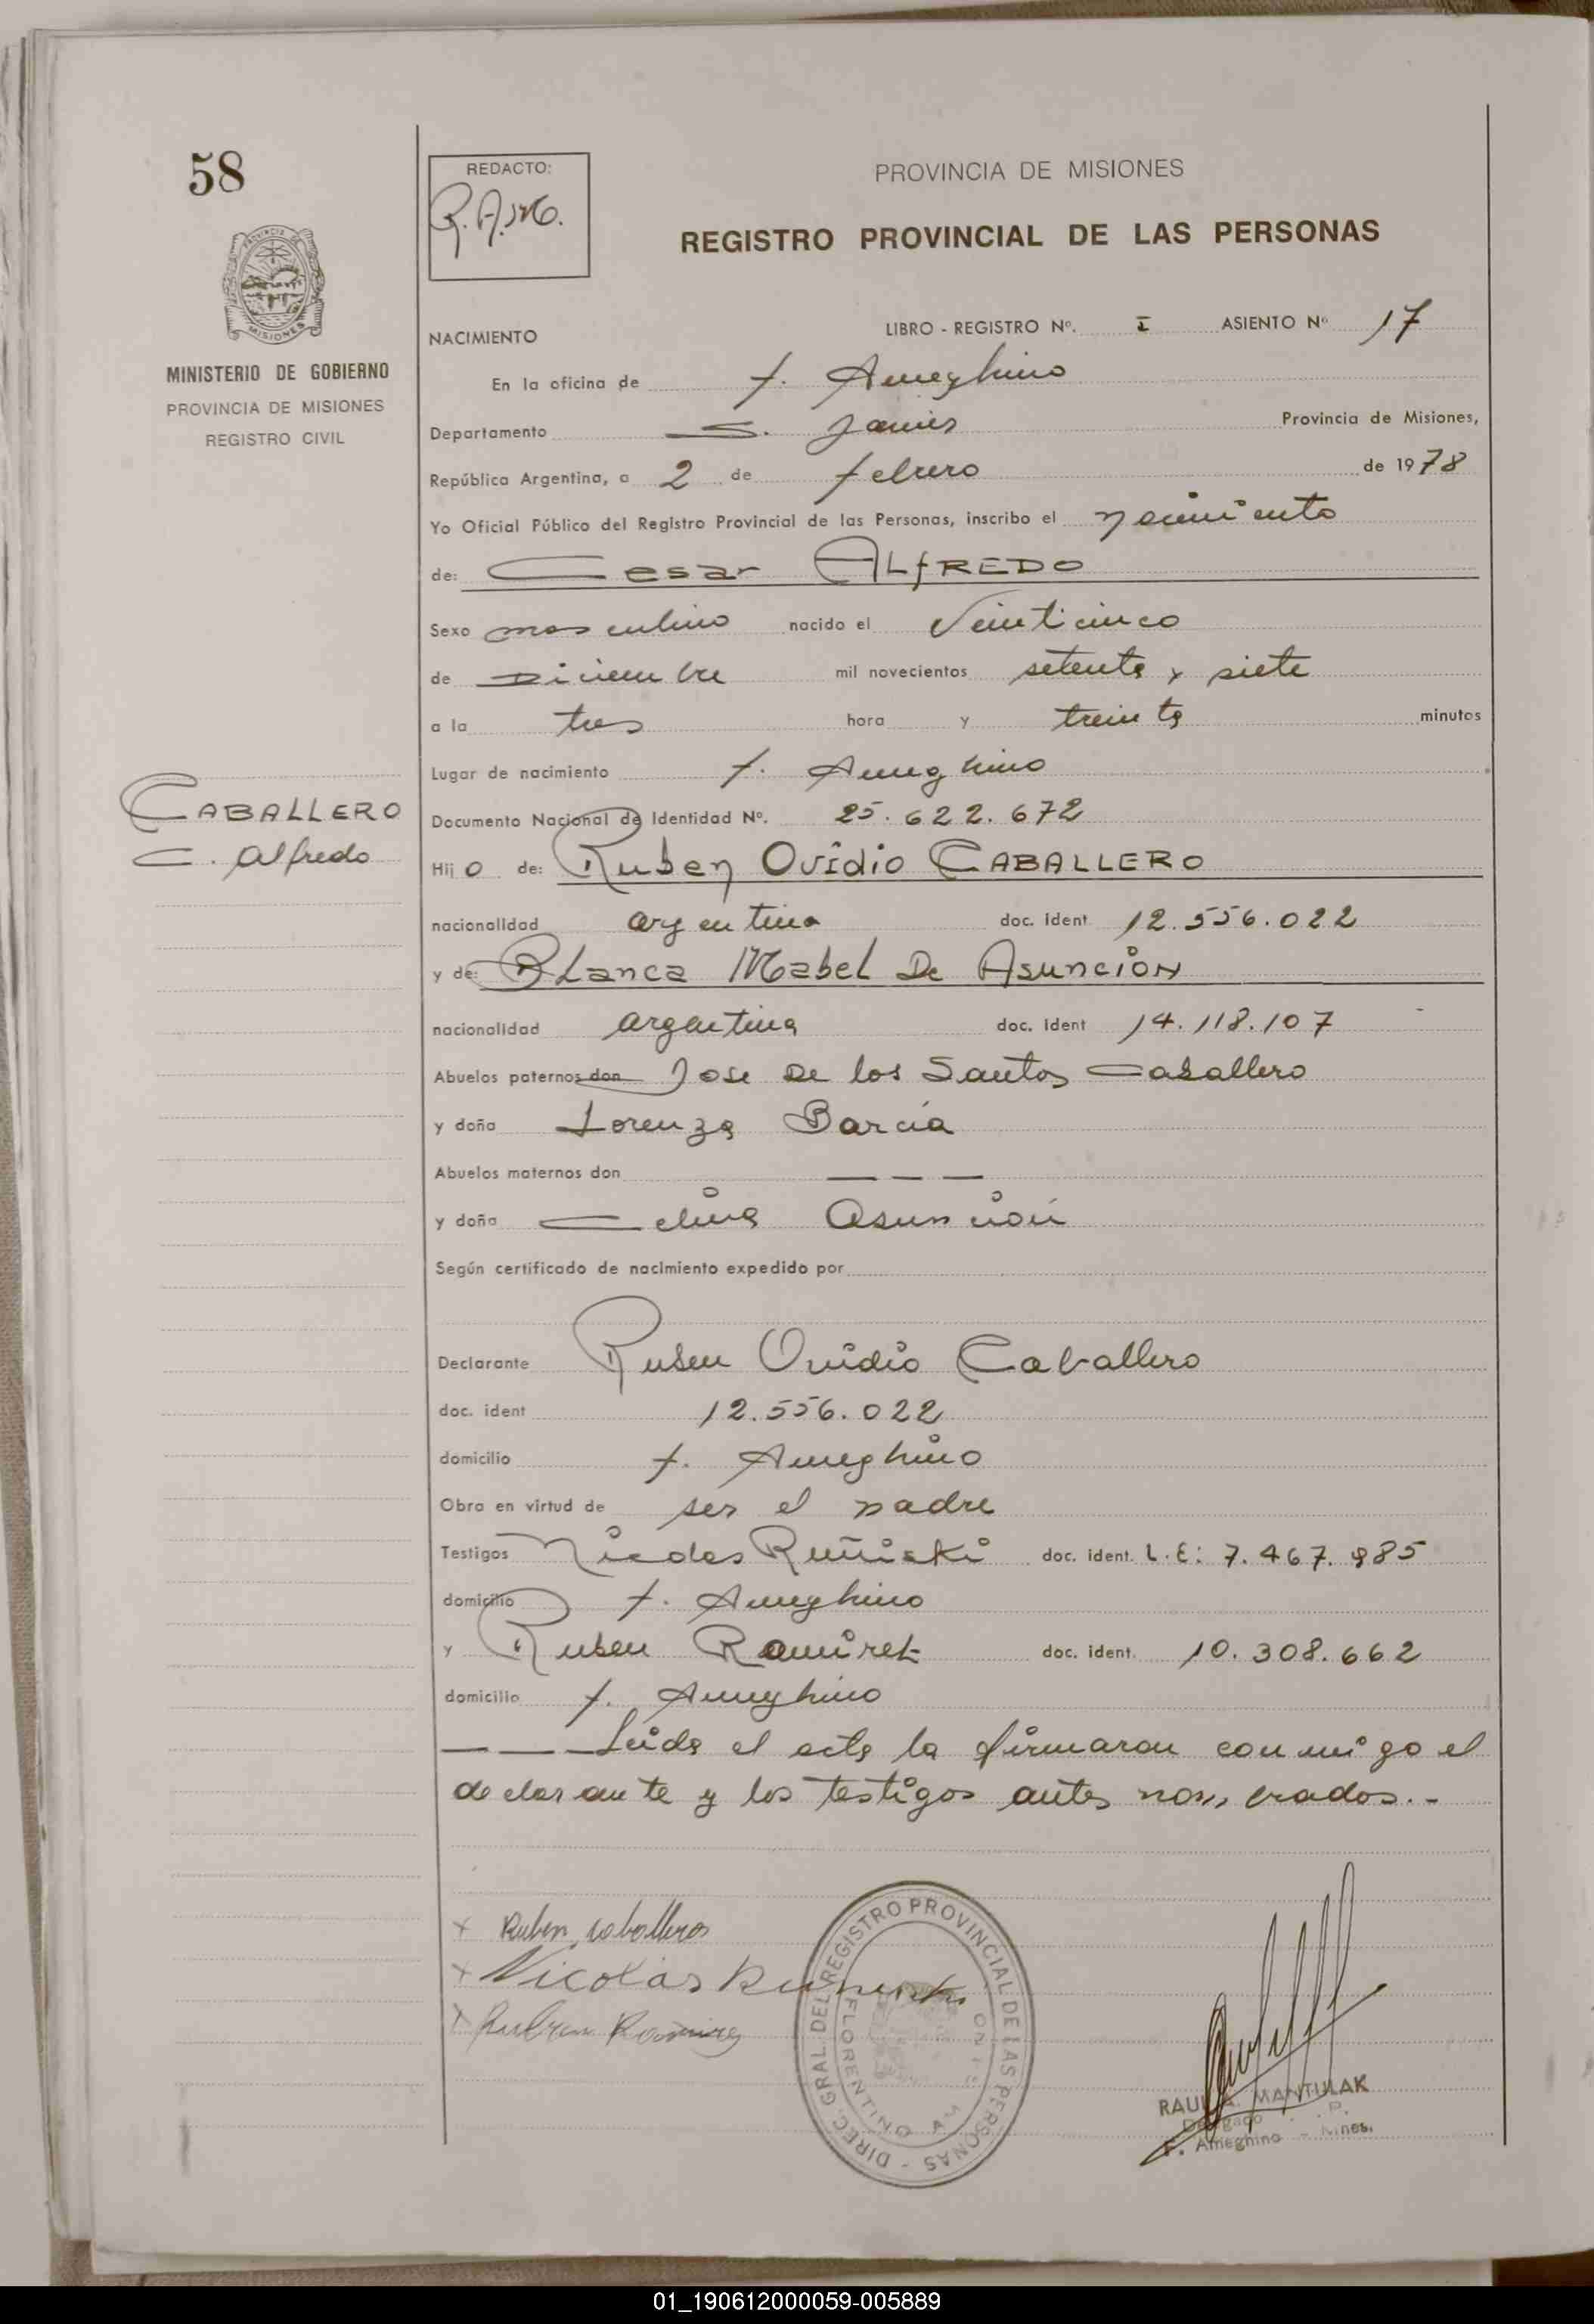 58
REDACTO:
R.A.M.
PROVINCIA DE MISIONES
REGISTRO PROVINCIAL DE LAS PERSONAS
MINISTERIO DE GOBIERNO
PROVINCIA DE MISIONES
REGISTRO CIVIL
NACIMIENTO LIBRO - REGISTRO Nº. I ASIENTO Nº 17
En la oficina de F. Ameghino
Departamento S. Javier Provincia de Misiones,
República Argentina, a 2 de febrero de 1978
Yo Oficial Público del Registro Provincial de las Personas, inscribo el nacimiento
de: Cesar ALFREDO
Sexo masculino nacido el Veinticinco
de Diciembre mil novecientos setenta y siete
a la tres hora y treinta minutos
Lugar de nacimiento F. Ameghino
CABALLERO
C. Alfredo
Documento Nacional de Identidad Nº. 25.622.672
Hijo de: Ruben Ovidio CABALLERO
nacionalidad argentina doc. ident 12.556.022
y de: BLanca Mabel De Asuncion
nacionalidad argentina doc. ident 14.118.107
Abuelos paternos don Jose De los Santos Caballero
y doña Lorenza Barcia
Abuelos maternos don — — —
y doña Celina Asunción
Según certificado de nacimiento expedido por
Declarante Ruben Ovidio Caballero
doc. ident 12.556.022
domicilio F. Ameghino
Obra en virtud de ser el padre
Testigos Nicolas doc. ident. L.E: 7.467.985
domicilio F. Ameghino
y Ruben Ramirez doc. ident. 10.308.662
domicilio F. Ameghino
— — — Leida el acta la firmaron conmigo el
declarante y los testigos antes nombrados.-
x Ruben Caballero
x Nicolás
x Ruben Ramirez
DIREC. GRAL. DEL REGISTRO PROVINCIAL DE LAS PERSONAS -
FLORENTINO AM
RAUL A. MANTULAK
Delegado
F. Ameghino - Mnes.
01_190612000059-005889